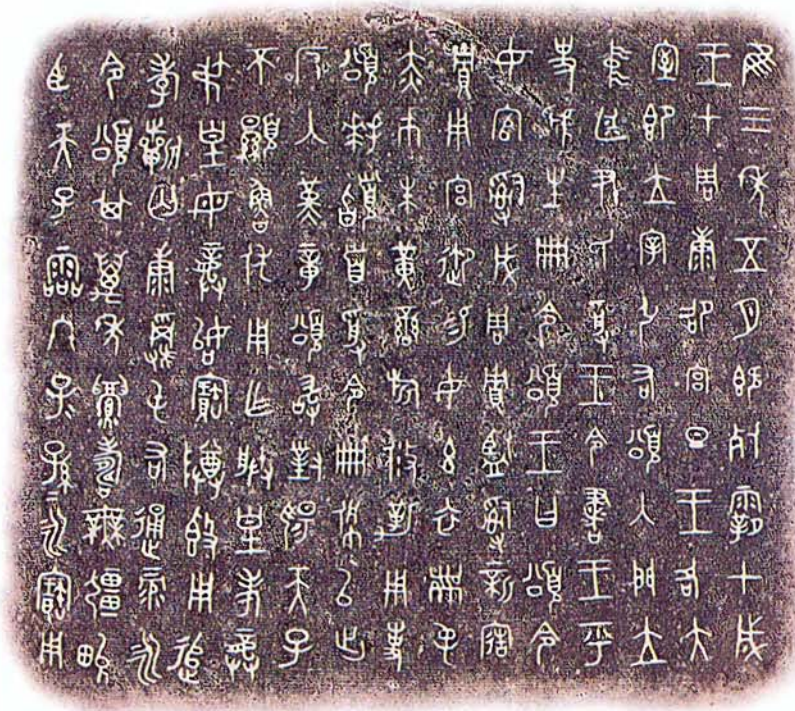 隹三年五月既死霸甲戌
王才周康卲宮旦王各大
室即立宰引右頌入門立
中廷尹氏受王令書王乎
史虢生冊令頌王曰頌令
女官𤔲成周貯監𤔲新造
貯用宮御易女玄衣黹屯
赤巿朱黃䜌旂攸勒用事
頌拜𩒨首受令冊佩以出
反入堇章頌敢對揚天子
不顯魯休用乍朕皇考龏
弔皇母龏始寶尊𣪘用追
孝𣄨匄康㽙屯右通彔永
令頌其萬年眉壽無疆畯
臣天子霝冬子=孫=永寶用